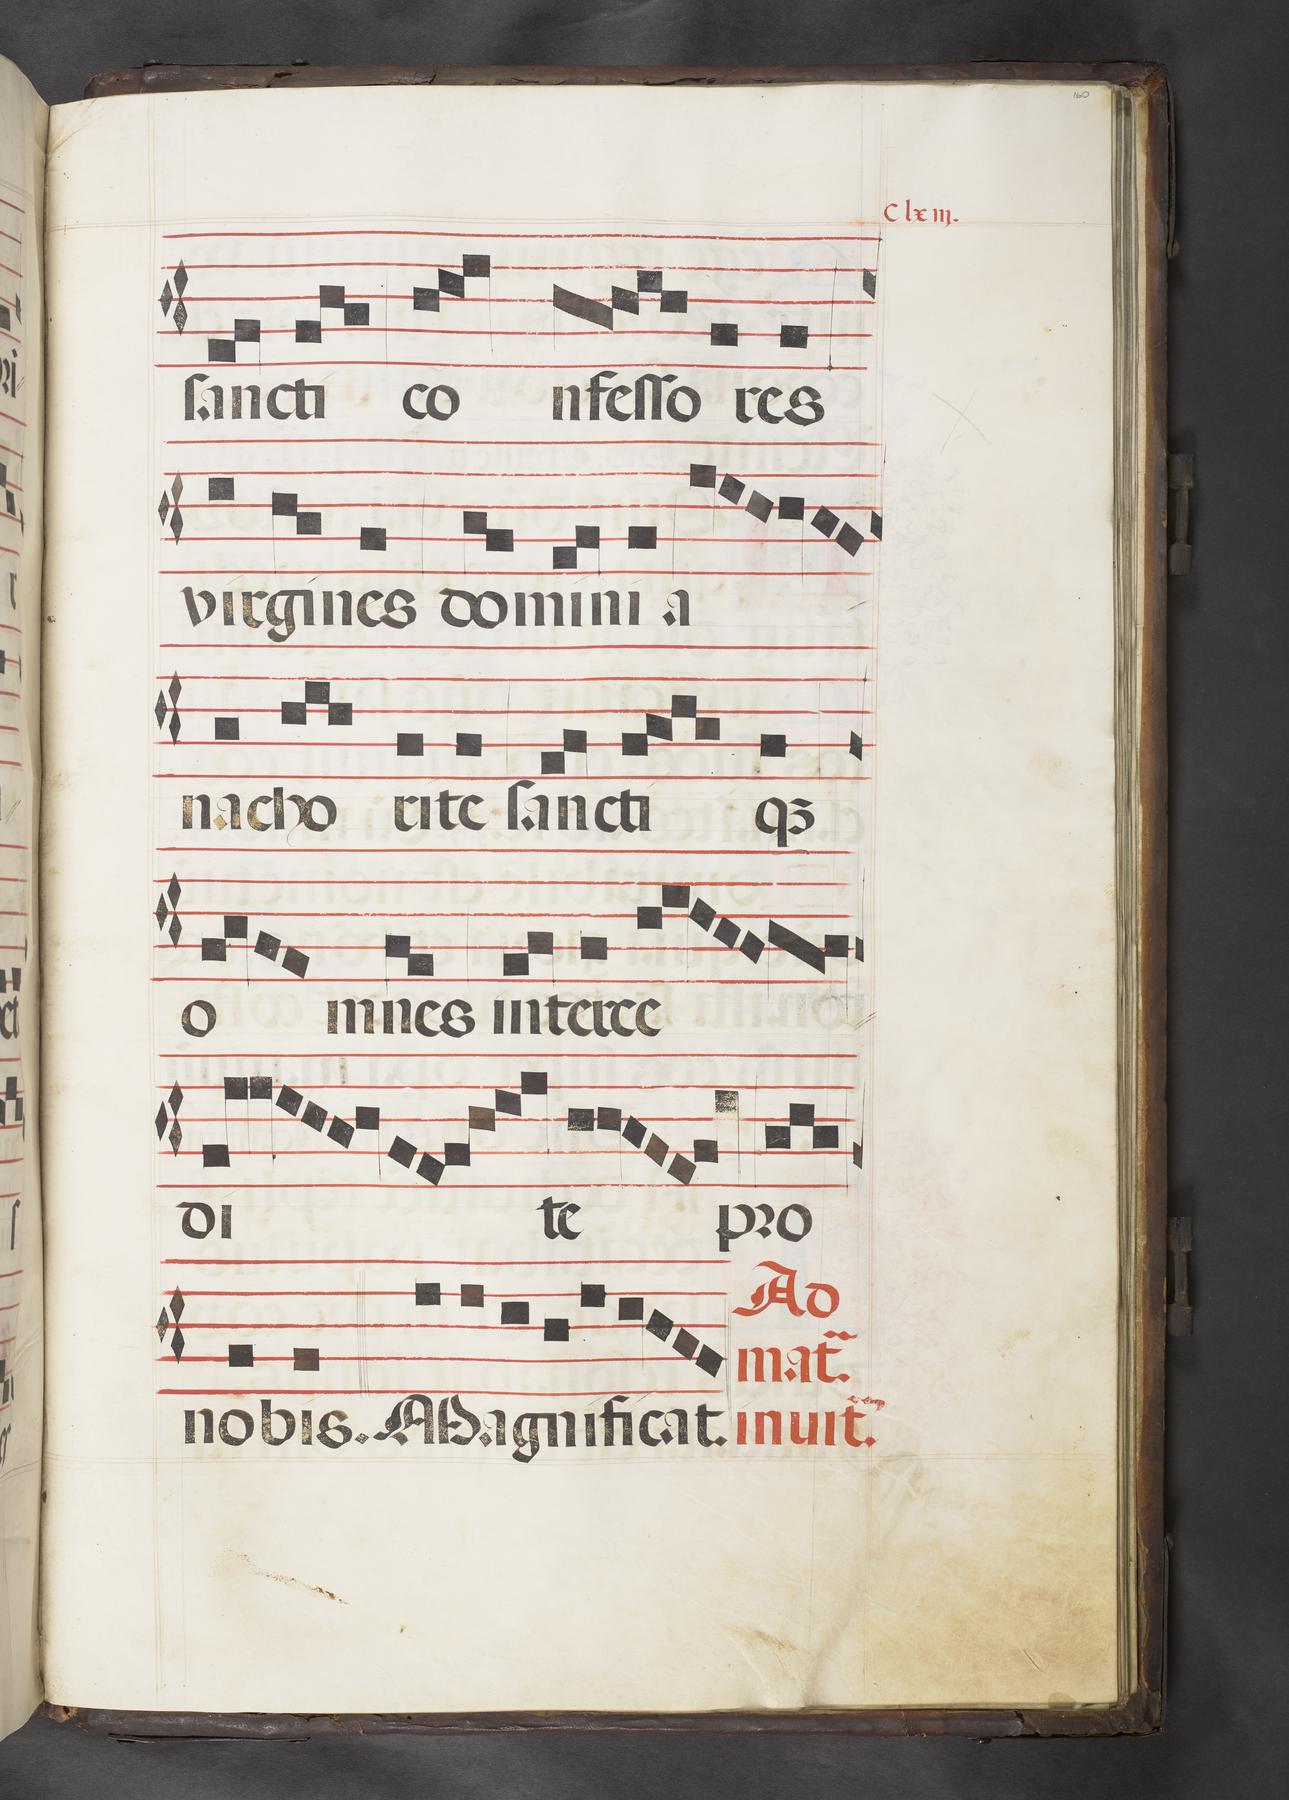 160
Clxiij.
sancti co nfesso res
virgines domini a
nacho rite sancti qʒ
o mnes interce
di te pro
Ad
mat̃.
nobis. Magnificat. inuit̃.